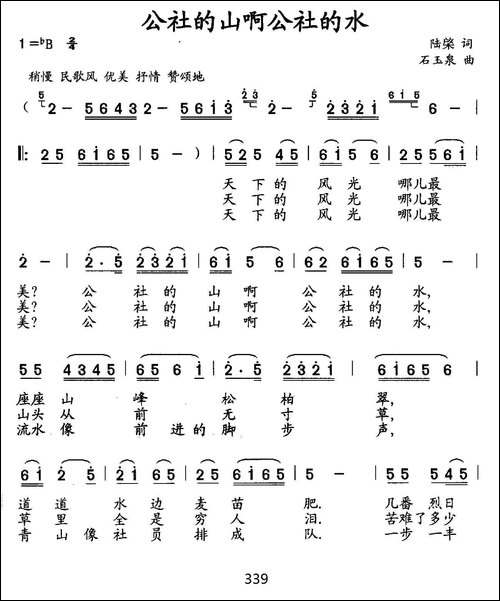 公社的山啊公社的水
1=♭B
陆棨 词
石玉泉 曲
稍慢 民歌风 优美 抒情 赞颂地
( 2 - | 5643 2 - | 5613 2 - | 2321 6 - |
‖: 25 6165 | 5 - ) | 525 45 | 615 6 | 2521 65 |
天 下 的 风 光 哪儿最
天 下 的 风 光 哪儿最
天 下 的 风 光 哪儿最
2 - | 2·5 2321 | 615 6 | 62 6165 | 5 - |
美? 公 社 的 山 啊 公 社 的 水,
美? 公 社 的 山 啊 公 社 的 水,
美? 公 社 的 山 啊 公 社 的 水,
55 4345 | 65 6 1 | 2·5 2321 | 6165 6 |
座座 山 峰 松 柏 翠,
山头 从 前 无 寸 草,
流水 像 前 进的 脚 步 声,
61 2 5 | 21 65 | 25 61 65 | 5 - | 55 545 |
道 道 水 边 麦 苗 肥. 几番 烈日
草 里 全 是 穷 人 泪. 苦难 了多少
青 山 像 社 员 排 成 队. 一步 一丰
339